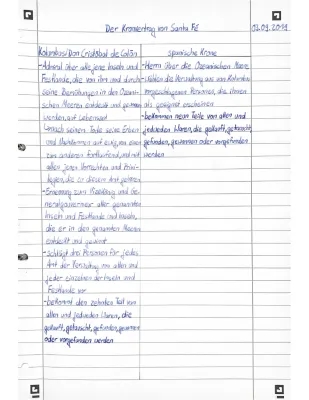 Der Kronvertrag von Santa Fé
02.09.2021
Kolumbus/Don Cristóbal de Colón
-Admiral über alle jene Inseln und
Festlande, die von ihm und durch
seine Bemühungen in den Ozeani-
schen Meeren entdeckt und gewonnen
werden, auf Lebenszeit
-nach seinem Tode seine Erben
und Nachkommen auf ewig, von einem
zum anderen fortlaufend, und mit
allen jenen Vorrechten und Privi-
legien, die zu diesem Amt gehören
-Ernennung zum Vizekönig und Ge-
neralgouverneur aller genannten
Inseln und Festlande und Inseln,
die er in den genannten Meeren
entdeckt und gewinnt
-schlägt drei Personen für jedes
Amt der Verwaltung von allen und
jeder einzelnen der Inseln und
Festlande vor
-bekommt den zehnten Teil von
allen und jedweden Waren, die
gekauft, getauscht, gefunden, gewonnen
oder vorgefunden werden
spanische Krone
-Herrn über die Ozeanischen Meere
-wählen die Verwaltung aus von Kolumbus
vorgeschlagenen Personen, die ihnen
als geeignet erscheinen
-bekommen neun Teile von allen und
jedweden Waren, die gekauft, getauscht,
gefunden, gewonnen oder vorgefunden
werden